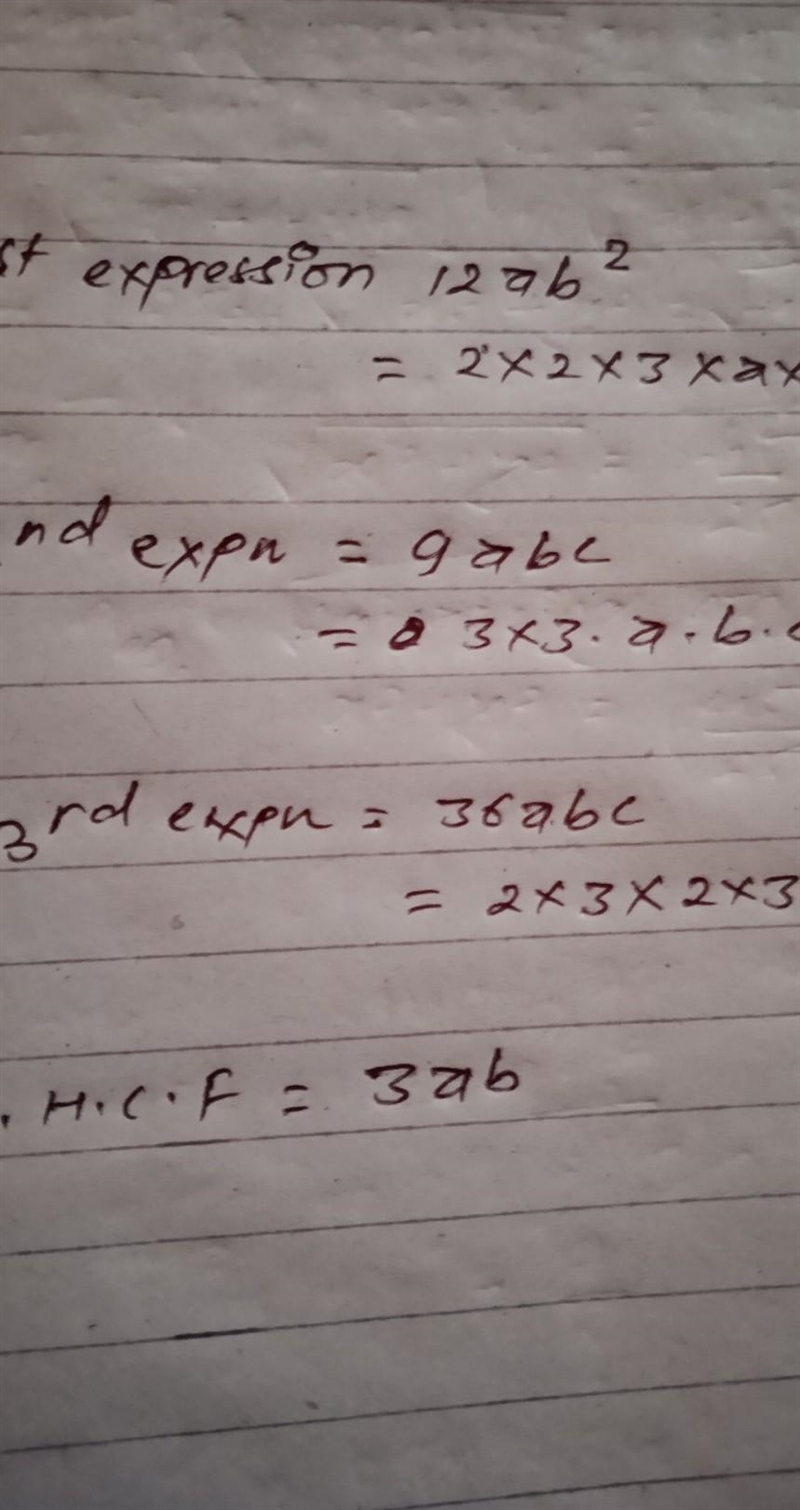 st expression 12ab²
= 2×2×3×a×
nd expn = 9abc
= 3×3.a.b.c
3rd expn = 36abc
= 2×3×2×3
. H.C.F = 3ab